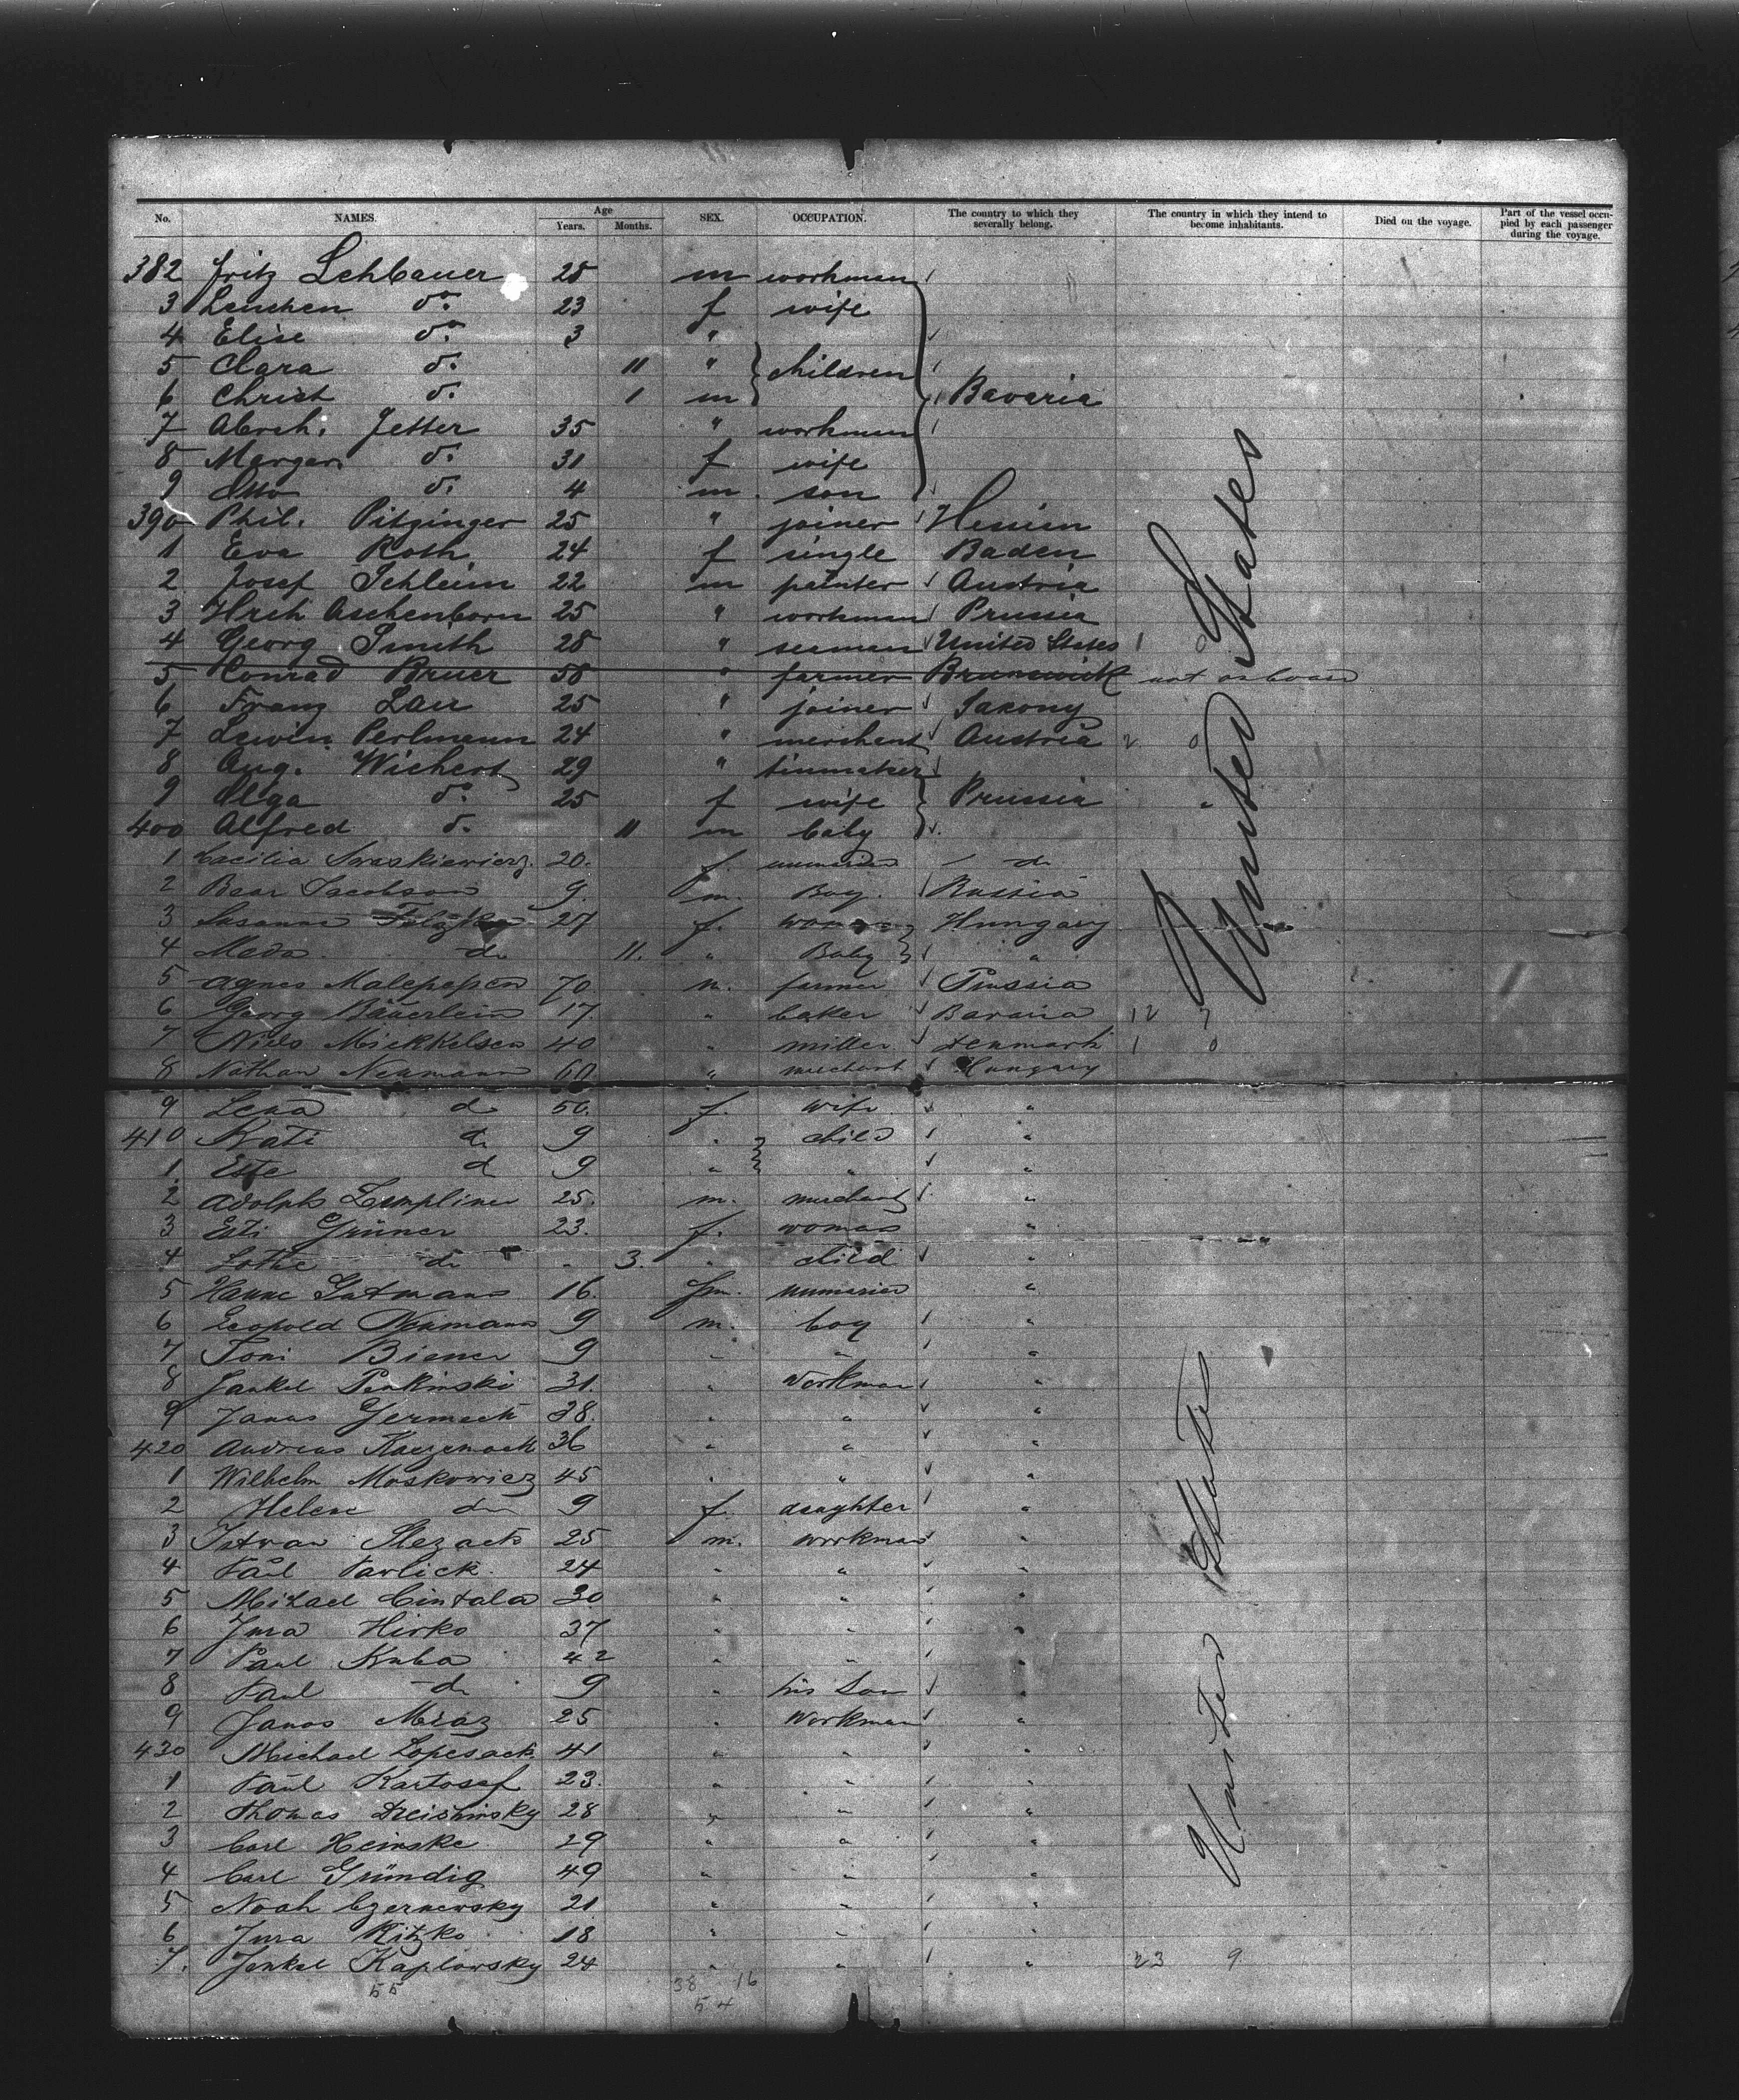 No. NAMES. Age Years. Months. SEX. OCCUPATION. The country to which they severally belong. The country in which they intend to become inhabitants. Died on the voyage. Part of the vessel occupied by each passenger during the voyage.
382 Fritz Lehbauer 28 m workman
3 Lenchen do. 23 f wife
4 Elise do. 3 "
5 Clara do. 11 " children
6 Christ do. 1 m Bavaria
7 Abrah. Jetter 35 " workman
8 Margar. do. 31 f wife
9 Otto do. 4 m son
390 Phil. Pitzinger 25 " joiner Hessien
1 Eva Roth 24 f single Baden
2 Josef Schleim 22 m painter Austria
3 Hrch Aschenborn 25 " workman Prussia
4 Georg Smith 28 " seaman United States 1 0
5 Conrad Bruer 58 " farmer Brunswick not on board
6 Franz Lau 25 " joiner Saxony
7 Lewin Perlmann 24 " merchant Austria 2 0
8 Aug. Wichert 29 " tinmaker
9 Olga do. 25 f wife Prussia "
400 Alfred do. 11 m baby
1 Caecilia Swaskiewicz 20. f. unmarried do
2 Bear Jacobson 9. m. Boy. Russia
3 Susanna 27 f. woman Hungary
4 Meda do 11. " Baby "
5 Agnes 70 m. farmer Prussia
6 Georg Bäuerlein 17. " baker Bavaria 12 7
7 Niels Mickkelsen 40 " miller Denmark 1 0
8 Nathan Neumann 60 " merchant Hungary
9 Lena do 50. f. wife "
410 Kati do 9 " child "
1. Este do 9 " " "
2 Adolph Templiner 25. m. merchant "
3 Esti Grüner 23. f. woman "
4 Lothe do " 3. " child "
5 Hanne Gutmann 16. fm. unmarried "
6 Leopold Neumann 9 m. boy "
7 Toni Biener 9 " " "
8 Jankel Penkinski 31. " Workman "
9 Janos Jermach 38. " " "
420 Andreas 36 " " "
1 Wilhelm Moskowicz 45 " " "
2 Helene do 9 f. daughter "
3 Istvan Slezack 25 m. workman "
4 Paul Pavlick 24 " " "
5 Michael Cintala 30 " " "
6 Jura Hirko 37 " " "
7 Paul Kuba 42 " " "
8 Paul do 9 " his Son "
9 Janos Mraz 25 " Workman "
430 Michael Lopesack 41 " " "
1 Paul Kartosef 23. " " "
2 Thomas 28 " " "
3 Carl Heinske 29 " " "
4 Carl Gründig 49 " " "
5 Noah Czernewsky 21 " " "
6 Jura Kitzko 18 " " "
7. Jenkel Kaplowsky 24 " " " 23 9
55 38 16
54
United States
United States